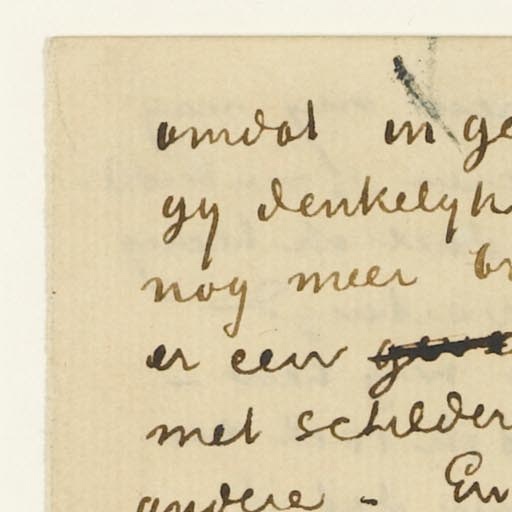 omdat in ge
gy denkelyk
nog meer br
er een
met schilder
andere - En